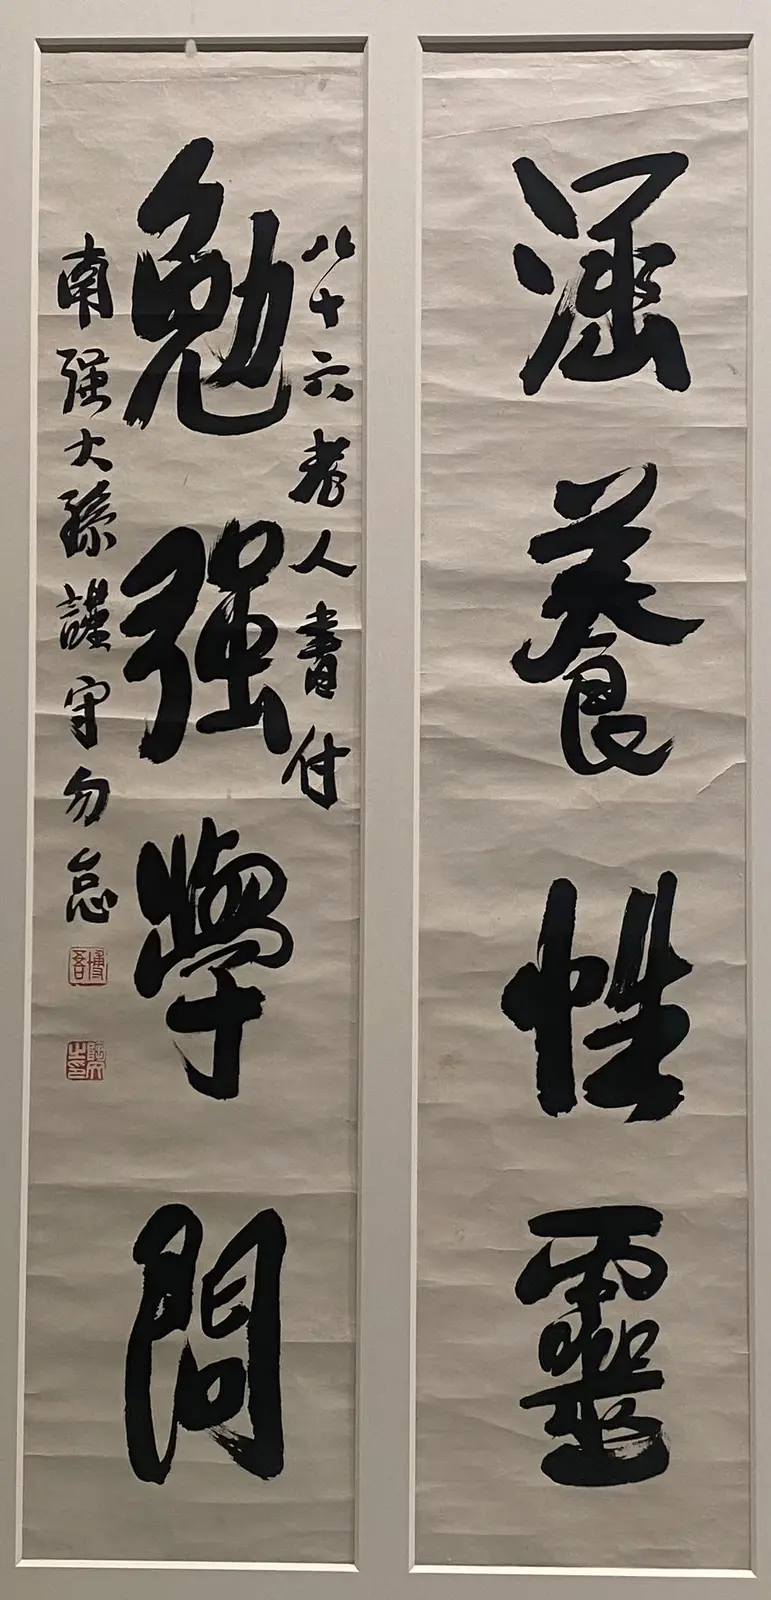 涵養性靈
勉强學問
八十六老人書付
南强大孫謹守勿忘